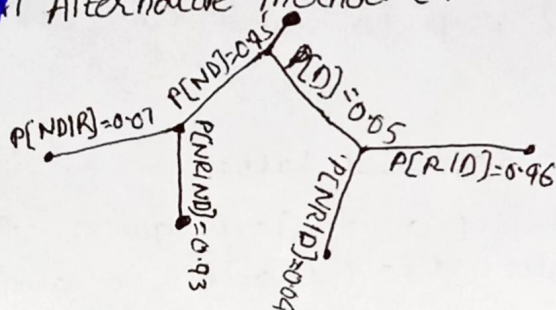 Alternative method
P[ND]=0.95
P[D]=0.05
P[ND|R]=0.07
P[NR|ND]=0.93
P[R|D]=0.96
P[NR|D]=0.04